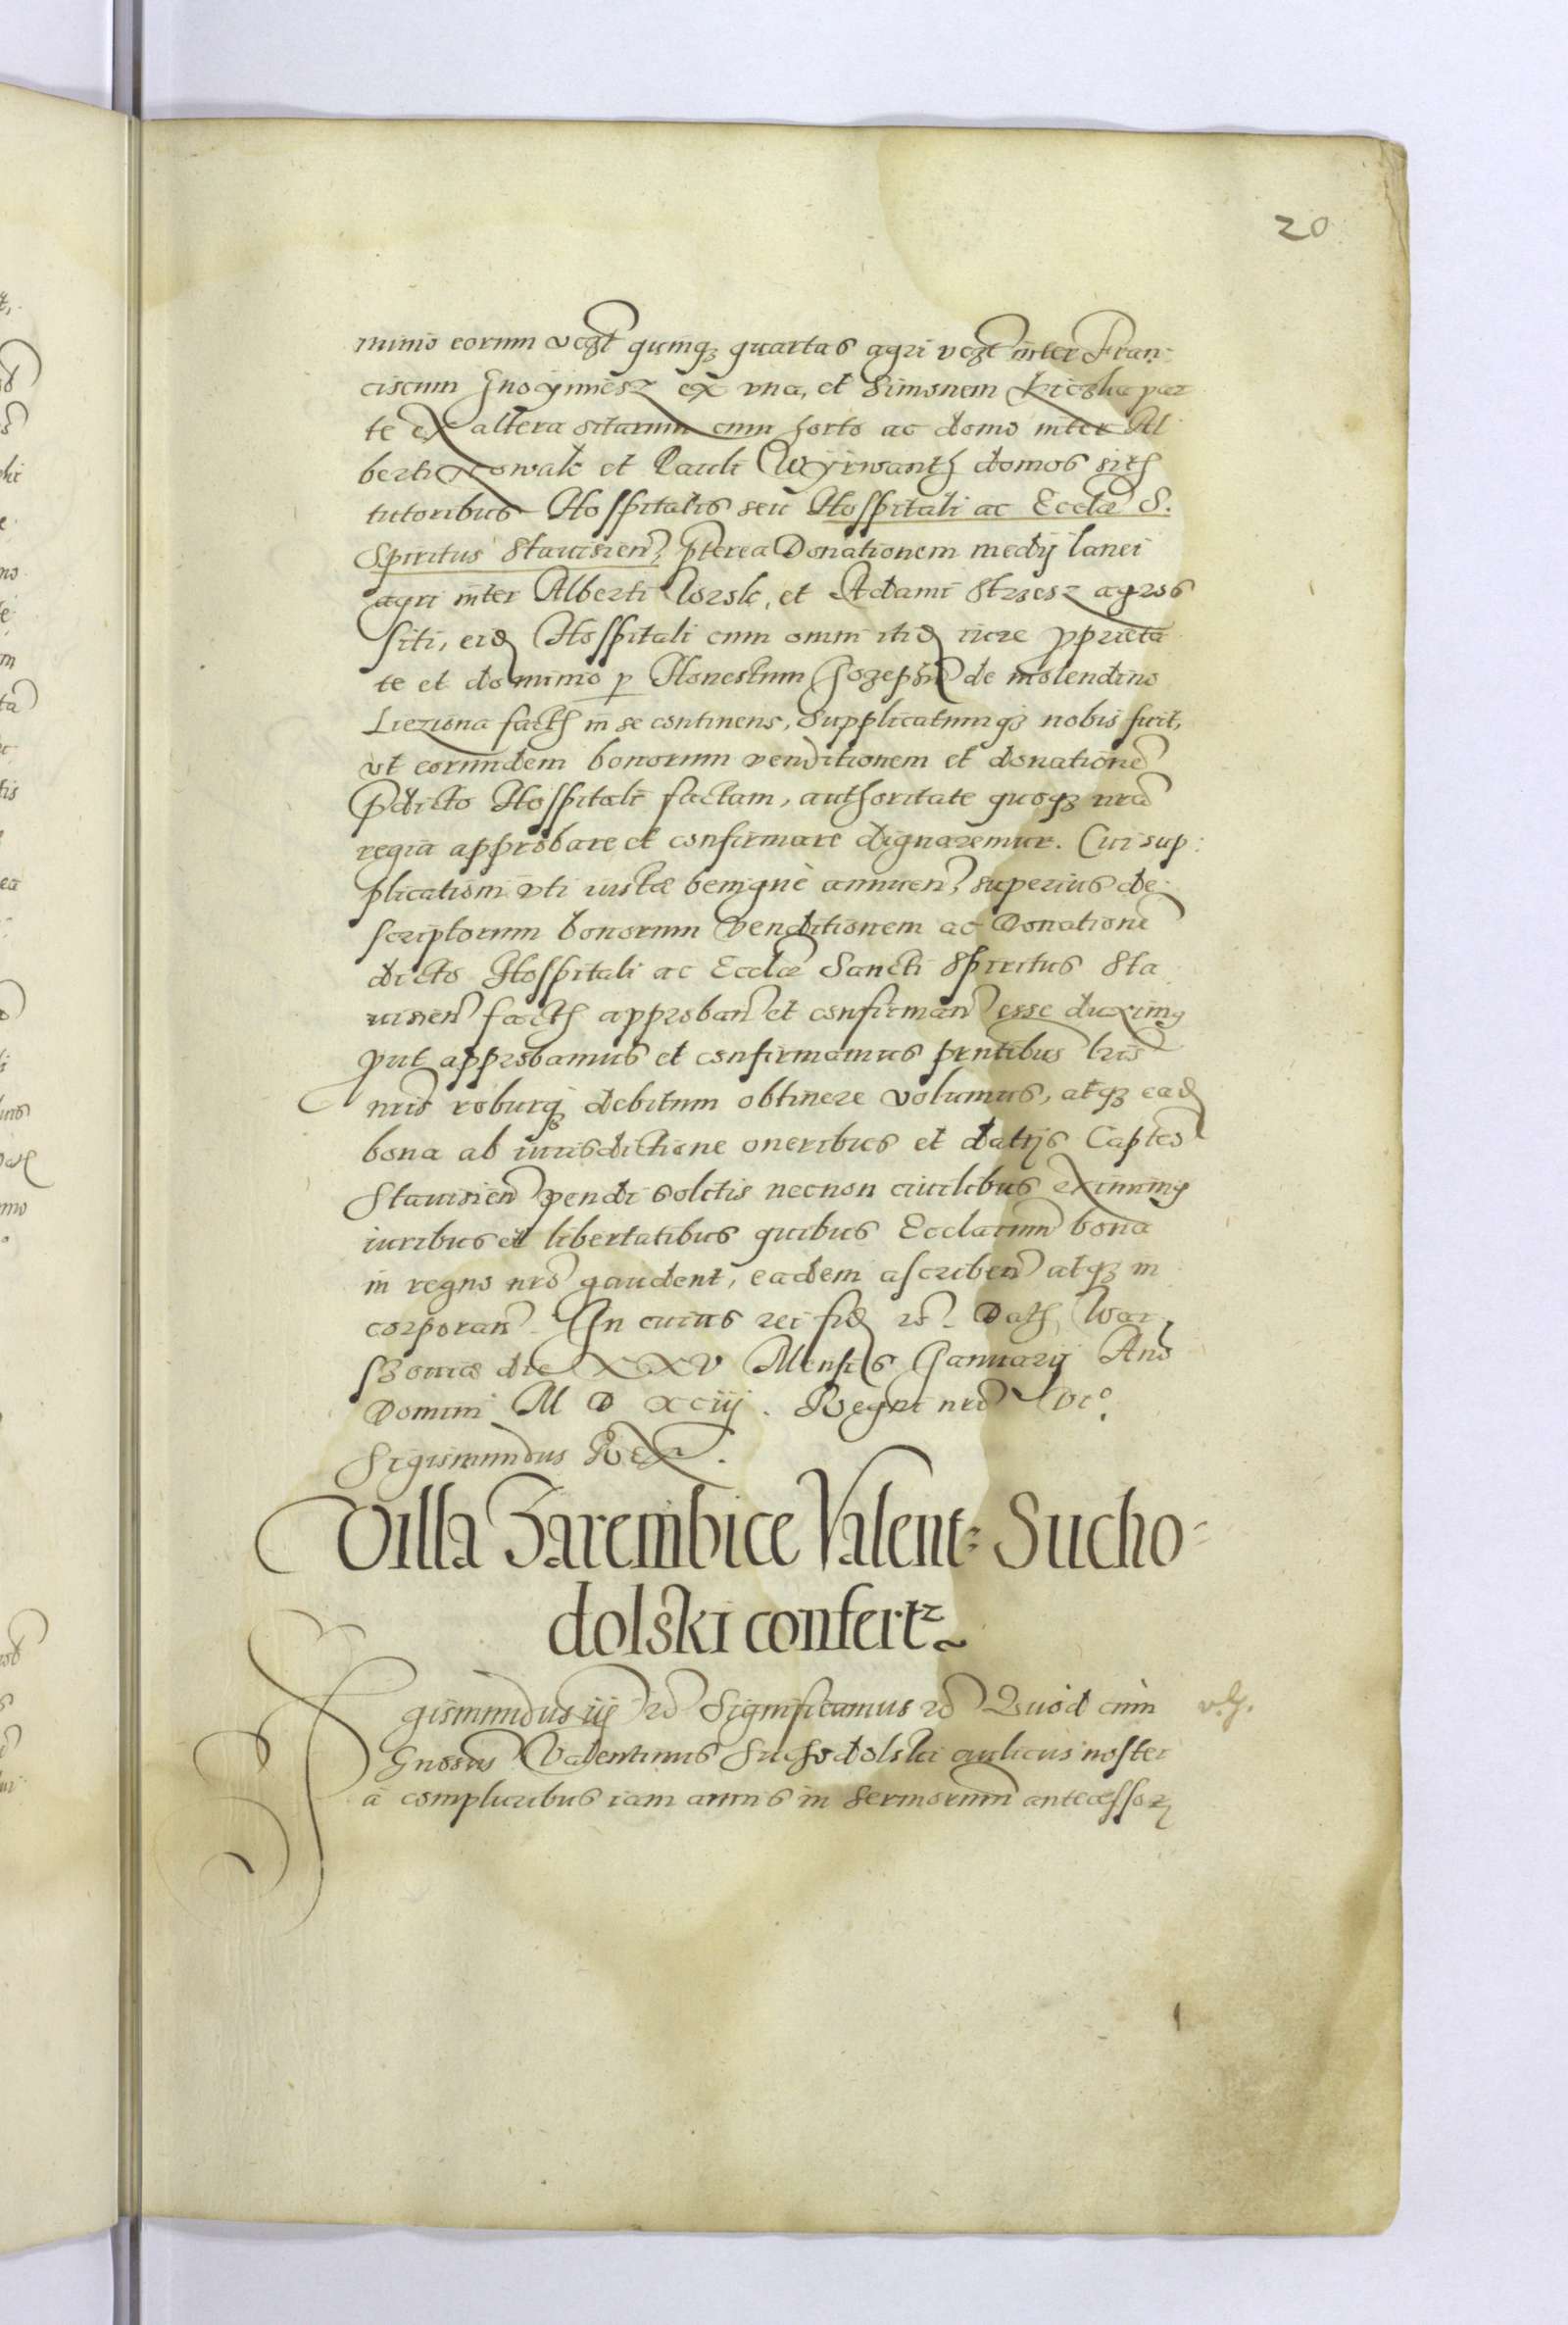 20
minio eorum vcgt̃ qumq₃ quartas agri vcgt̃ inter Fran-
ciscum Gnoyimiesz ex vna, et Simonem par
te ex altera sitarum cum horto ac domo inter Al
berti Kowalc et Pauli Wyrwanth domos sith
tutoribus Hospitalis seu Hospitali ac Eccłæ S.
Spiritus Stauisieñ, p̃terea Donationem medij lanei
agri inter Alberti Worsk, et Adami Strzesz agros
siti, eid Hospitali cum omni itid iure ꝓprieta
te et dominio ꝑ Honestum Jozephũ de molendino
Lieziona facth in se continens, Supplicatumq₃ nobis fuit,
vt eorundem bonorum venditionem et donationẽ
P̃dicto Hospitali factam, authoritate quoq₃ nrã
regia approbare et confirmare dignaremur. Cui sup:
plicationi vti iustæ benignè annueñ, superius de
scriptorum bonorum venditionem ac Donationẽ
dicto Hospitali ac Eccłæ Sancti Spiritus Sta
uisieñ facth approbañ et confirmañ esse duximꝰ
ꝓut approbamus et confirmamus pñtibus łris
nr̃is roburq₃ debitum obtinere volumus, atq₃ ead
bona ab iurisdictione oneribus et datijs Capteo
Stauisieñ pendi solitis necnon ciuilibus eximimꝰ
iuribus et libertatibus quibus Eccłarum bona
in regno nr̃o gaudent, eadem ascribeñ atq₃ in
corporañ. In cuius rei fid rc̃. Dath War,
szouiæ die XXV Mensis Januarij Ano
Domini M D XCiij. Regni nr̃i Vᵗᵒ.
Sigismundus Rex.
Villa Zarembice Valent: Sucho-
dolski confertᶻ
Sigismundus iij rc̃ Significamus rc̃ Quod cum
Gnosus Valentinus Suchodolski aulicus noster
à compluribus iam annis in Sermorum antecessoꝝ